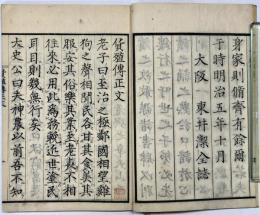 身家則脩齊有餘爾
于時明治五年十月
大阪 東井潔全誌
貨殖傳正文
老子曰至治之極鄰國相望雞
狗之聲相聞民各甘其食美其
服安其俗樂其業至老死不相
往來必用此爲務輓近世塗民
耳目則幾無行矣
太史公曰夫神農以前吾不知